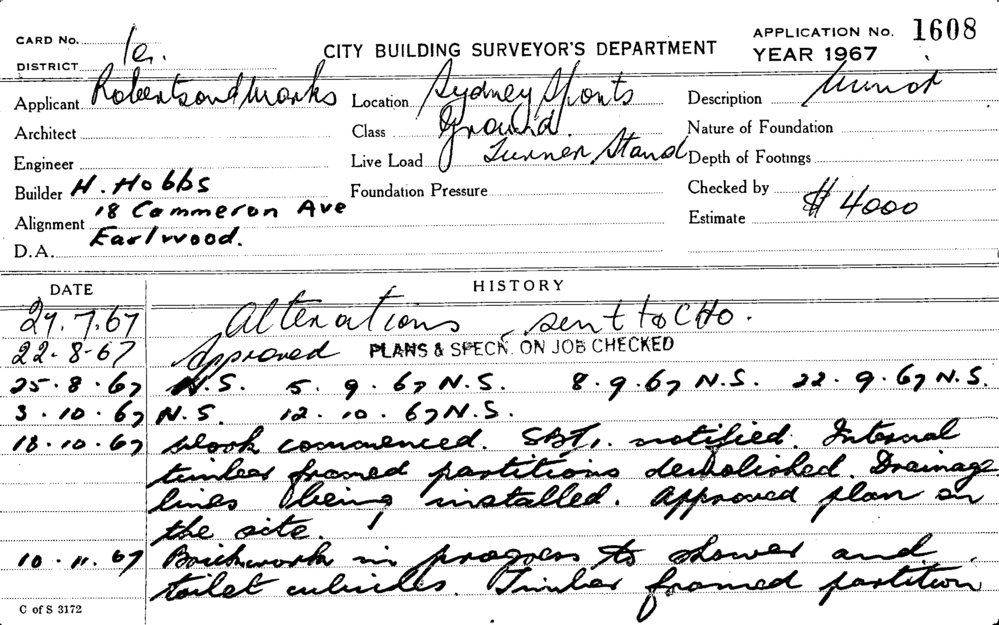 CARD No. 1a.
CITY BUILDING SURVEYOR'S DEPARTMENT
APPLICATION No. 1608
DISTRICT
YEAR 1967
Applicant Robertson & Marks Location Sydney Sports Description Minor
Architect Class Ground. Nature of Foundation
Engineer Live Load Turner Stand Depth of Footings
Builder H. Hobbs Foundation Pressure Checked by
Alignment 18 Cammeron Ave Estimate $4000
D.A. Earlwood.
DATE HISTORY
27.7.67 Alterations sent to CHO.
22-8-67 Approved PLANS & SPECN. ON JOB CHECKED
25.8.67 N.S. 5.9.67 N.S. 8.9.67 N.S. 22.9.67 N.S.
3.10.67 N.S. 12.10.67 N.S.
18.10.67 Work commenced. notified. Internal
timber framed partitions demolished. Drainage
lines being installed. Approved plan on
the site.
10.11.67 Brickwork in progress to shower and
toilet cubicles. Timber framed partition
C of S 3172